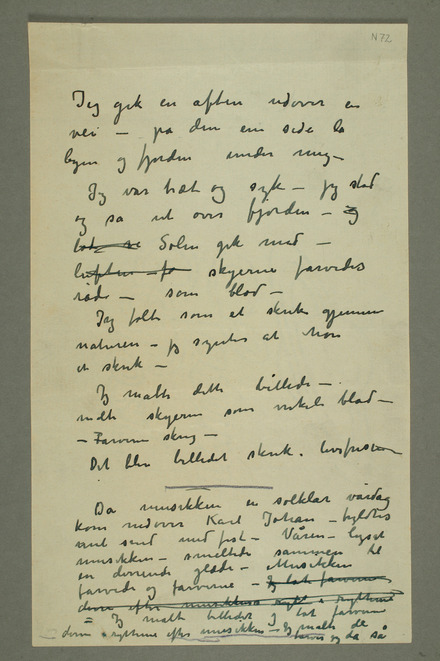 N 72
Jeg gik en aften udover en
vei – på den ene side lå
byen og fjorden under mig –
Jeg var træt og syk – jeg stod
og så ut over fjorden – og
Solen gik ned –
luften skyerne farvedes
røde – som blod –
Jeg følte som et skrik gjennem
naturen – jeg syntes at høre
et skrik –
Jeg malte dette billede –
malte skyerne som virkeligt blod –
– Farverne skreg –
Det blev billedet skrik i livsfrisen
Da musikken en solklar vårdag
kom nedover Karl Johan – fyldtes
mit sind med fest – Våren – lyset
musikken – smeltede sammen til
en dirrende glæde – Musikken
farvede og farverne – Jeg lot farverne
dirre efter musikkens rytme
Jeg malte billedet Jeg lot farverne
dirre i rythme efter musikken – jeg malte de
farver jeg da så